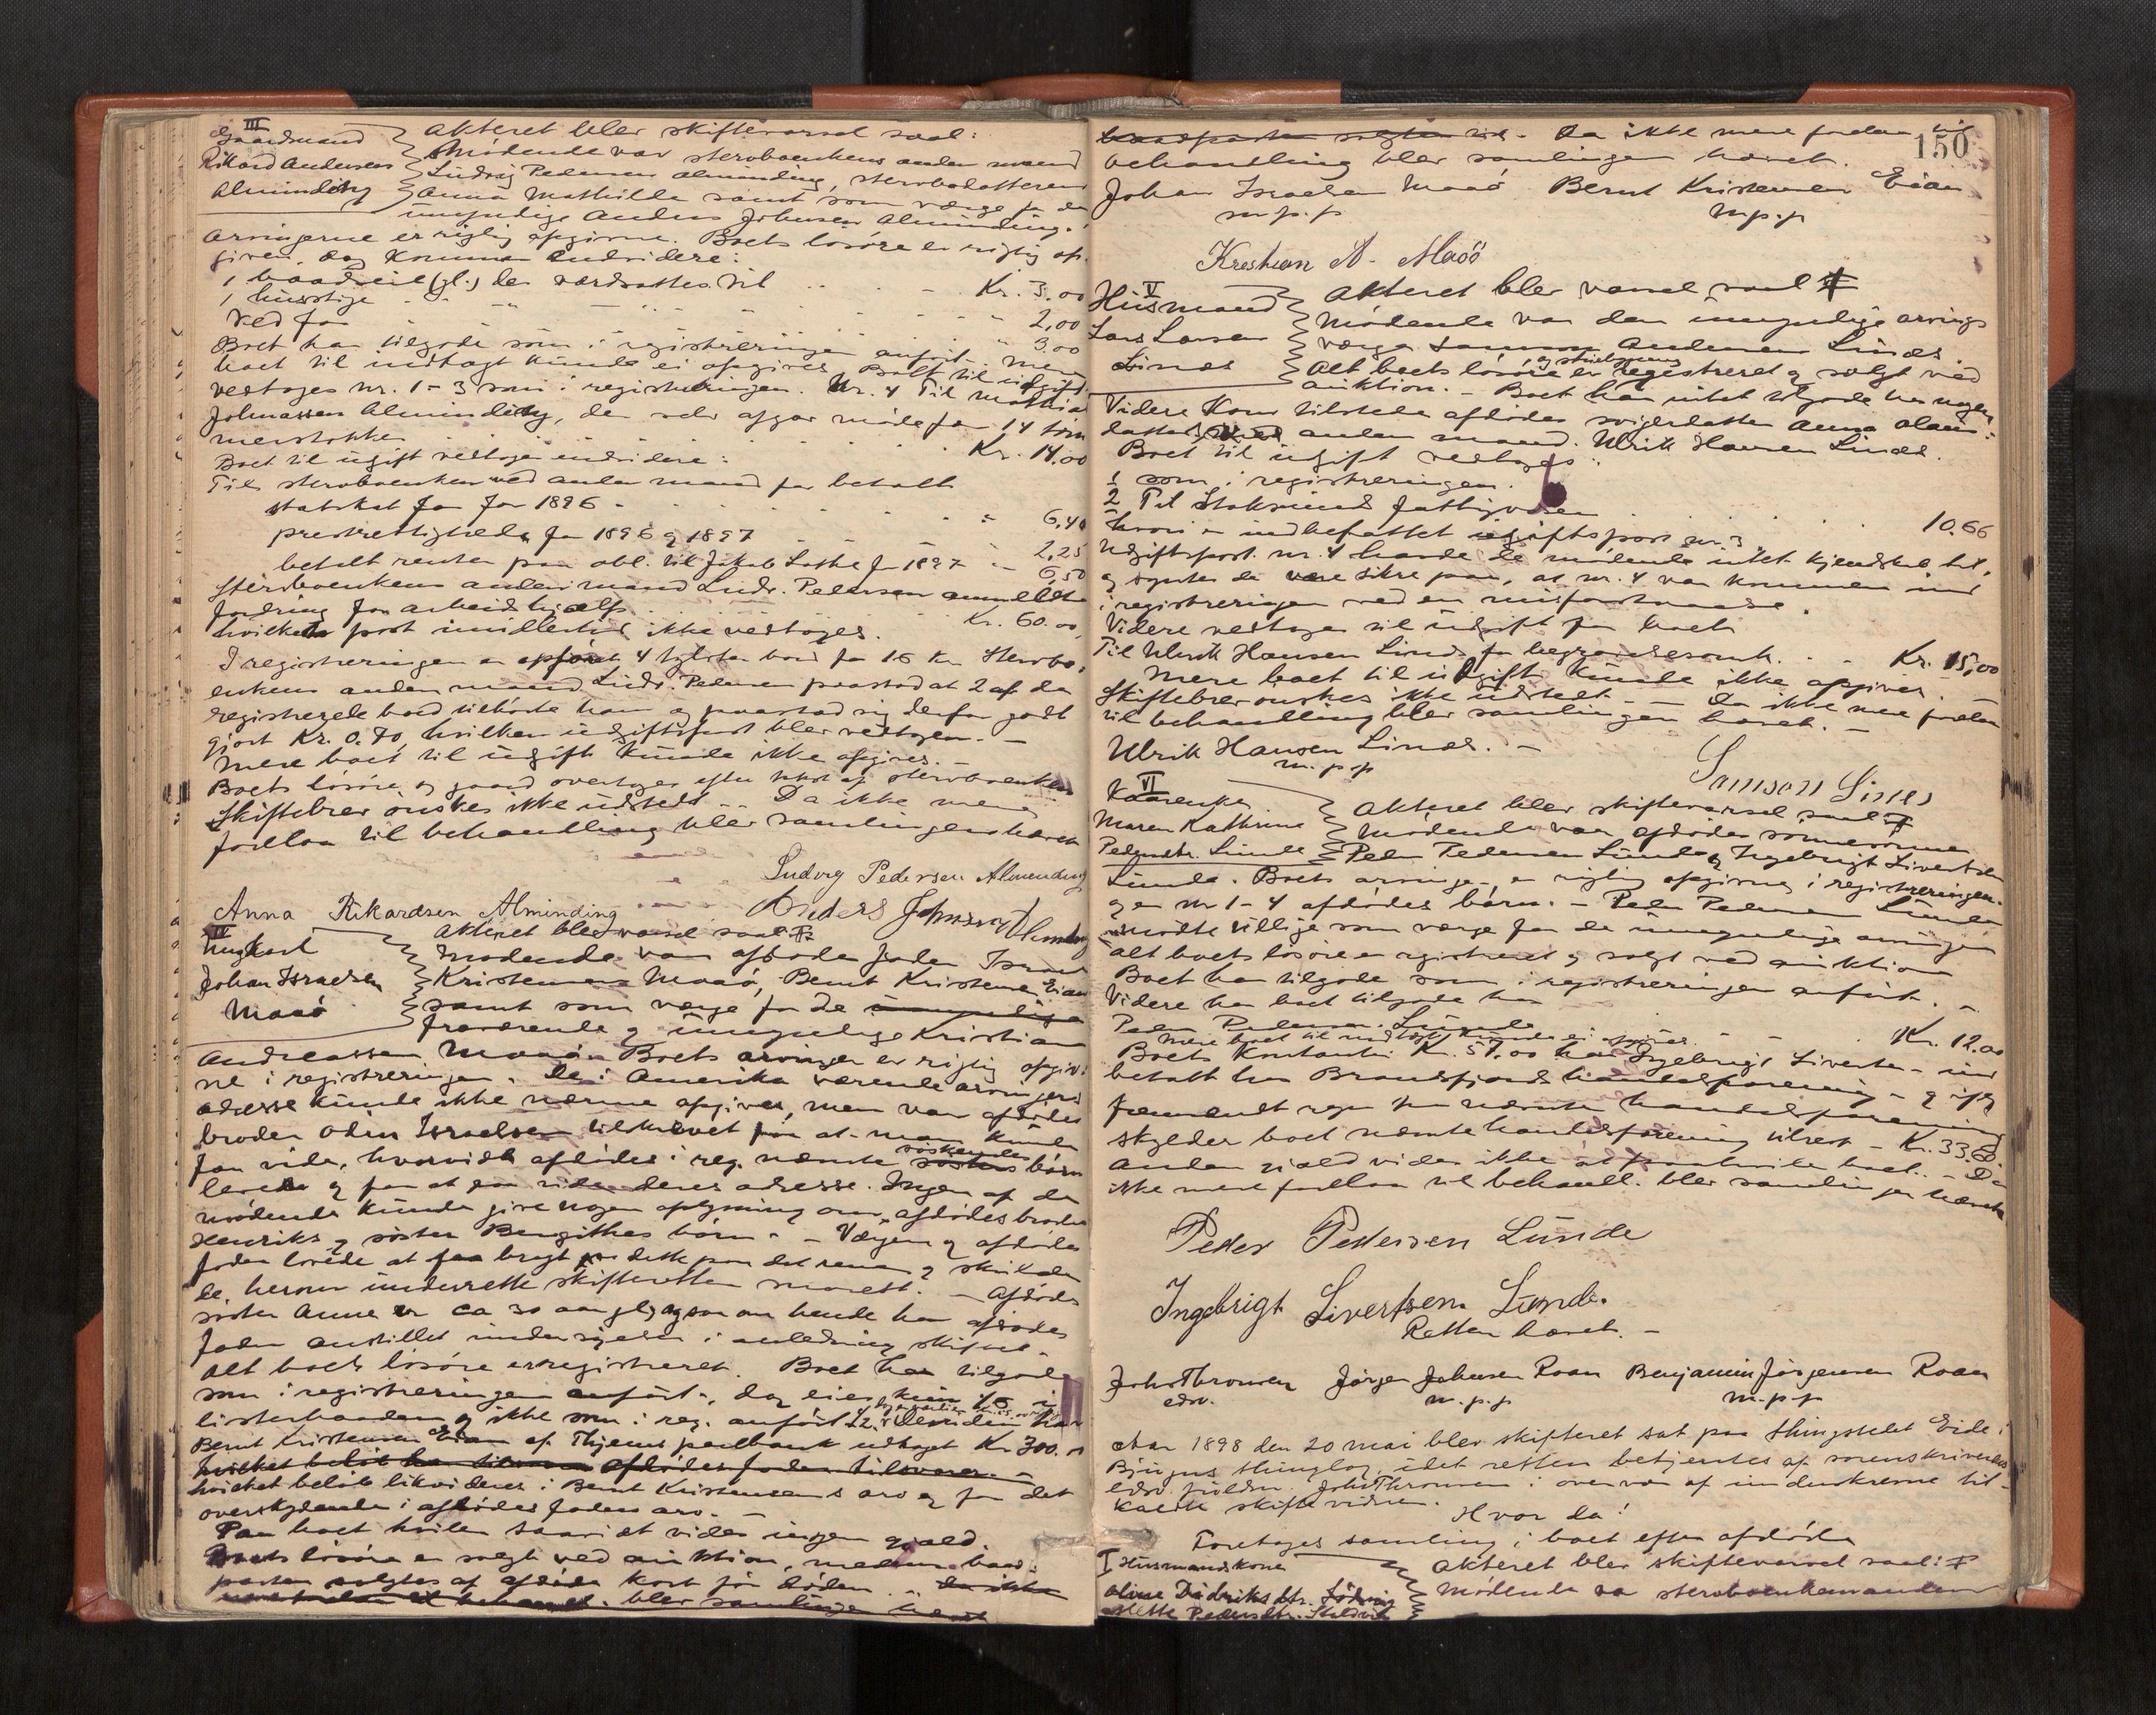 III
Gaardmand
Rikard Andersen
Alminding
Akteret blev skiftevarsel saal:
Mødende var stervboenkens anden mand
Ludvig Pedersen Alminding, stervbodatteren
Anna Mathilde samt som værge for den
umyndige Anders Johnsen Alminding.
Arvingerne er rigtig opgivne. Boets løsøre er rigtig op-
given, dog kommer endvidere:
1 baadseil (gl.) der værdsattes til Kr. 3.00
1 husstige 2,00
Ved for 3.00
Boet har tilgode som i registreringen anført. Mere
boet til indtægt kunde ei opgives. Boet til udgift
vedtoges nr. 1-3 som i registreringen. Nr. 4 Til Mathias
Johnassen Alminding, der selv afgav møde for 14 tøm
merstokker Kr. 14.00
Boet til udgift vedtoges endvidere:
Til stervboenken ved anden mand for betalt
statskat for 1896 6,40
prestrettigheder for 1896 og 1897 2,25
betalt renter paa obl. til Jakob Sathe for 1897 6,50
Stervboenkens anden mand Ludv. Pedersen anmeldte
fordring for arbeidshjælp Kr. 60.00
hvilken post imidlertid ikke vedtoges.
I registreringen er opført 4 tylvter bord for 16 Kr. Stervbo-
enkens anden mand Ludv. Pedersen paastod at 2 af de
registrerede bord tilhørte ham og paastod sig derfor godt
gjort Kr. 0.70, hvilken udgiftspost blev vedtagen. -
Mere boet til udgift kunde ikke opgives. -
Boets løsøre og gaard overtoges efter af stervboenken
Skiftebrev ønskes ikke udstedt. - Da ikke mere
forelaa til behandling blev samlingen hævet
Ludvig Pedersen Almending
Anna Rikardsen Alminding Anders Johnsen Alminding
IV
Ungkarl
Johan Israelsen
Maaø
Akteret blev varsel saal
Mødende var afdødes fader Israel
Kristensen Maaø, Bernt Kristensen Eian
samt som værge for de umyndige
fraværende og umyndige Kristian
Andreassen Maaø. Boets arvinger er rigtig opgiv-
ne i registreringen. De i Amerika værende arvingers
adresse kunde ikke nærme opgives, men var afdødes
broder Odin Israelsen tilskrevet for at man kunde
faa vide, hvorvidt afdødes i reg. nævnte søskendes børn
levede og for at faa vide deres adresse. Ingen af de
mødende kunde give nogen oplysning om afdødes broder
Henriks og søster Bergithes børn. - Værgen og afdødes
fader lovede at faa bragt dette paa det rene og skulde
de, herom underrette skifteretten snarest. - Afdødes
søster Anne er ca 30 aar gl, og om hende har afdødes
fader anstillet undersøgelse i anledning skiftet. -
Alt boets løsøre er registreret. Boet har tilgode
som i registreringen anført, dog eies kun 1/6 i
listerbaaden og ikke som i reg. anført 1/2. Desuden har
Bernt Kristensen Eian af Thjems sparebank udtaget Kr. 300.00
hvilket beløb har tilsvar afdødes fader tilsvarer. -
hvilket beløb likvideres i Bernt Kristensens arv og for det
overskydende i afdødes faders arv. -
Paa boet hviler saavidt vides ingen gjæld.
Boets løsøre er solgt ved auktion, medens baad-
parten solgtes af afdøde kort før døden. - da ikke
mere forelaa til behandl. blev samlingen hævet
150
baadparten solgtes - Da ikke mere forelaa til
behandling blev samlingen hævet.
Johan Israelsen Maaø Bernt Kristensen Eian
m.p.p. m.p.p.
Kristian A. Maaö
V
Husmand
Lars Larsen
Lines
Akteret blev varsel saal
Mødende var den umyndige arvings
værge Samson Andersen Lines.
Alt boets løsøre er registreret og solgt ved
auktion. - Boet har intet tilgode hos nogen
Videre kom tilstede afdødes svigerdatter Anna Olaus-
datter anden mand Ulrik Hansen Lines.
Boet til udgift vedtoges:
1 som i registreringen.
2 Til Stoksunds fattigvæsen 10.66
hvori er indbefattet udgiftspost nr. 3
Udgiftspost nr. 4 havde de mødende intet kjendskab til,
og syntes de være sikre paa, at nr. 4 var kommen ind
i registreringen ved en misforstaaelse.
Videre vedtoges til udgift for boet
Til Ulrik Hansen Lines for begravelsesomk. Kr. 15,00
Mere boet til udgift kunde ikke opgives. -
Skiftebrev ønskes ikke udstedt. - Da ikke mere forelaa
til behandling blev samlingen hævet. -
Ulrik Hansen Lines. -
m.p.p. Samson Lines
VI
Kaarenke
Maren Kathrine
Pedersdtr. Lunde
Akteret blev skiftevarsel saal
Mødende var afdødes sønner
Peder Pedersen Lunde og Ingebrigt Sivertsen
Lunde. Boets arvinger er rigtig opgivne i registreringen
og er nr 1-4 afdødes børn. - Peder Pedersen Lunde
mødte tillige som værge for de umyndige arvinger
Alt boets løsøre er registreret og solgt ved auktion
Boet har tilgode som i registreringen anført. -
Videre har boet tilgode hos
Peder Pedersen Lunde Kr. 12.00
Mere boet til indtægt kunde ei opgives.
Boets kontanter Kr. 57.00 har Ingebrigt Sivertsen ind
betalt hos Brandsfjords handelsforening - og ifg
fremsendt regn. fra nævnte handelsforening
skylder boet nævnte handelsforening tilrest - Kr. 33.60
Anden gjæld vides ikke at paahvile boet. - Da
ikke mere forelaa til behandl. blev samlingen hævet
Peder Pedersen Lunde
Ingebrigt Sivertsen Lunde.
Retten hævet. -
Johs Thronsen Jørgen Johnsen Roan Benjamin Jørgensen Roan
edsv. m.p.p. m.p.p.
Aar 1898 den 20 mai blev skifteret sat paa thingstedet Eide i
Bjørnørs thinglag, idet retten betjentes af sorenskriverens
edsv. fuldm. Johs Thronsen i overvær af underskrevne til-
kaldte skiftevidner. Hvor da!
Foretoges samling i boet efter afdøde
I Husmandskone
Oline Didriksdtr.
Mette Pedersdtr.
Akteret blev skiftevarsel saal:
Mødende var stervboenkemanden